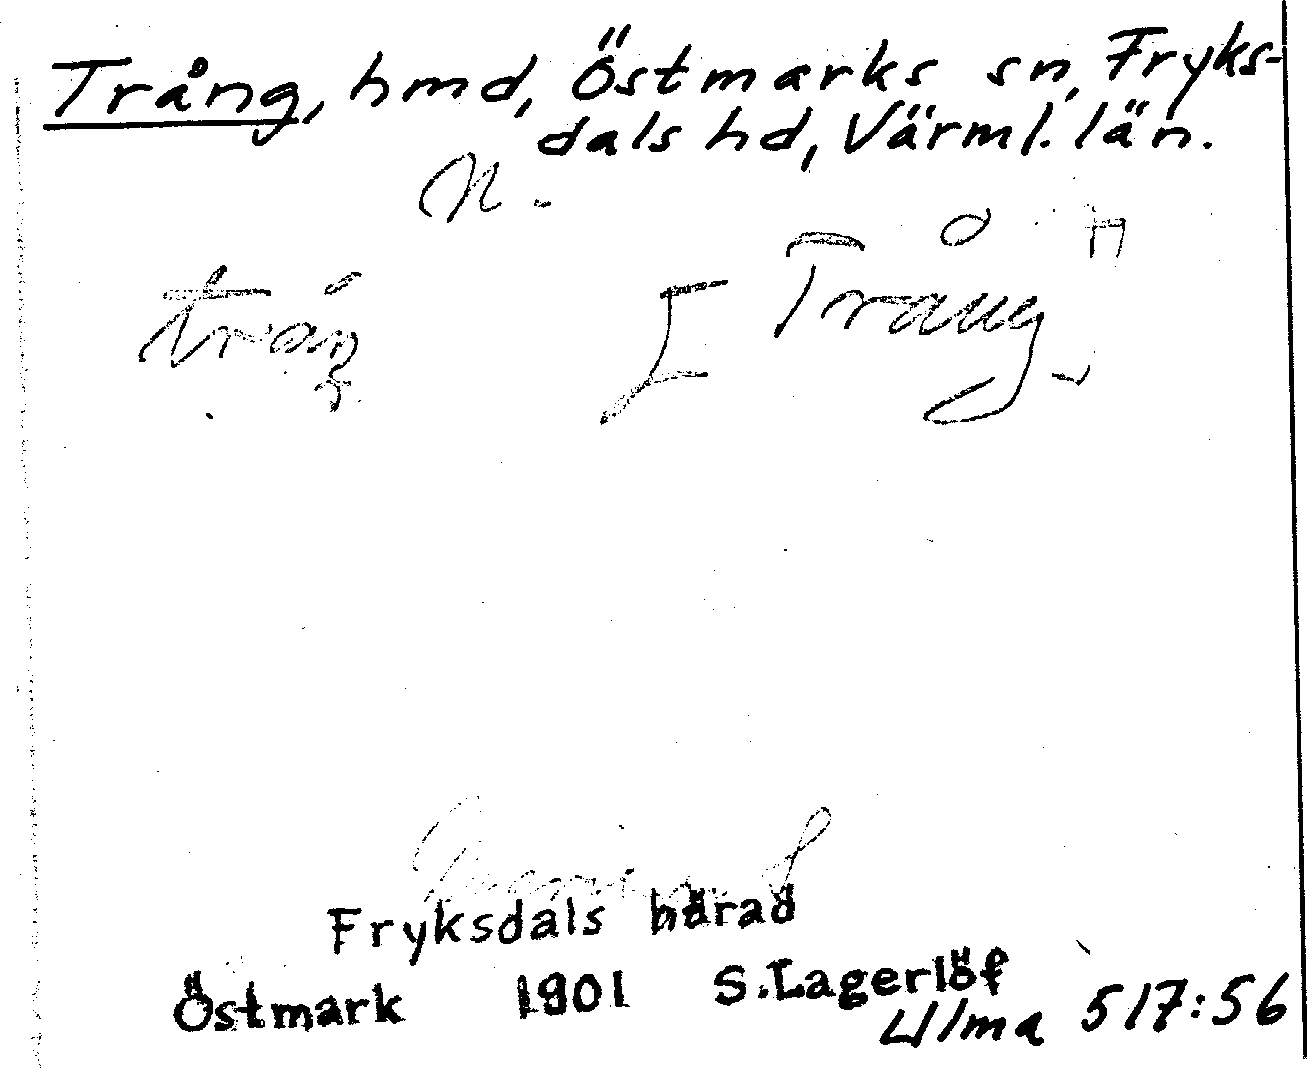 Trång, hmd, Östmarks sn, Fryks-
dals hd, Värml. län.
N.
[Trång]
Fryksdals härad
Östmark 1901 S. Lagerlöf
Ulma 517:56